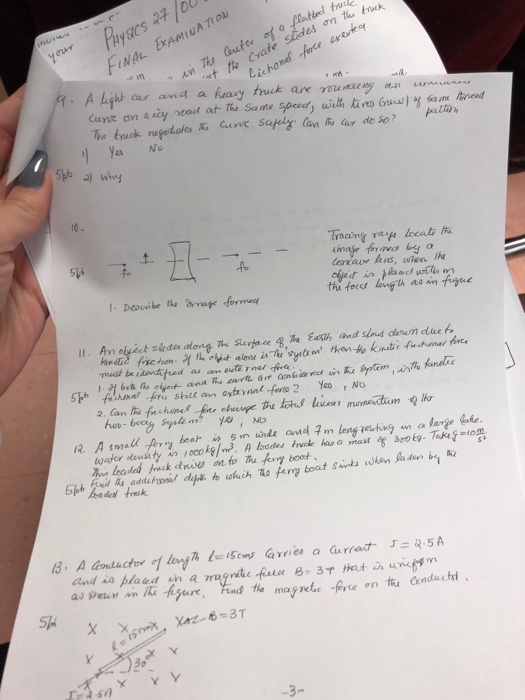 your
PHYSICS 27100
FINAL EXAMINATION
in the center of a flatbed truck
the crate slides on the truck
frictional force exerted
9. A light car and a heavy truck are rounding an
curve on a icy road at the same speed, with tires of same thread
pattern
The truck negotiates the curve safely. Can the car do so?
1) Yes No
5pts 2) why
10.
Tracing rays locate the
image formed by a
concave lens, when the
object is placed within
the focal length as in figure
5pts
fo fo
1. Describe the image formed
11. An object slides along the surface of the Earth and slows down due to
kinetic friction. If the object alone is the system then the kinetic frictional force
must be identified as an external force.
1. If both the object and the earth are considered in the system, is the kinetic
5pts frictional force still an external force? Yes, NO
2. Can the frictional force change the total linear momentum of the
two-body system? Yes, NO
12. A small ferry boat is 5m wide and 7m long resting in a large lake.
water density is 1000 kg/m³. A loaded truck has a mass of 300kg. Take g=10m/s²
loaded truck drives on to the ferry boat.
6pts Find the additional depth to which the ferry boat sinks when laden by the
loaded truck
13. A Conductor of length l=15cms Carries a Current I=2.5A
and is placed in a magnetic field B=3T that is uniform
as shown in the figure. Find the magnetic force on the conductor.
5pts
X X X X B=3T
l=15cm
X 30° X
X X X X
I=2.5A
-3-